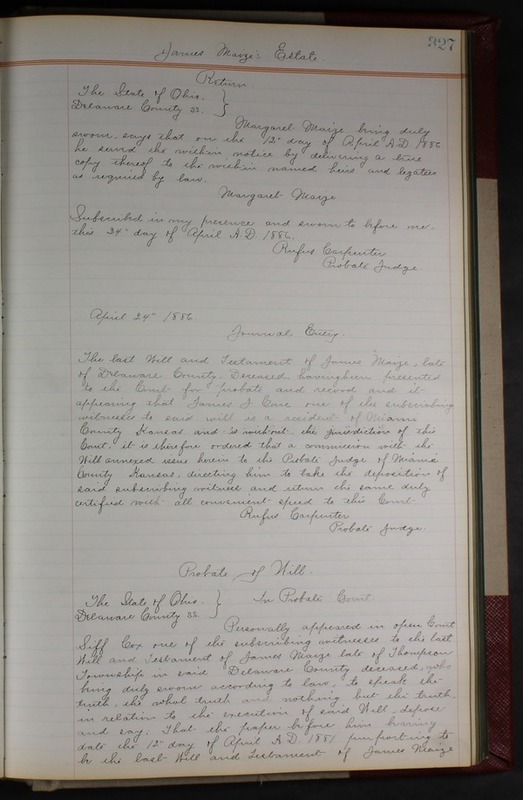 327
James Maize's Estate.
Return.
The State of Ohio. }
Delaware County ss. }
Margaret Maize being duly
sworn says that on the 12" day of April A.D. 1886
he served the within notice by delivering a true
copy thereof to the within named heirs and legatees
as required by law.
Margaret Maize
Subscribed in my presence and sworn to before me
this 24" day of April A.D. 1886.
Rufus Carpenter
Probate Judge
April 24" 1886
Journal Entry.
The last Will and Testament of James Maize, late
of Delaware County, Deceased having been presented
to the Court for probate and record and it
appearing that James J. one of the subscribing
witnesses to said will is a resident of Miami
County Kansas and is without the jurisdiction of this
Court, it is therefore ordered that a commission with the
Will annexed issue herein to the Probate Judge of Miami
County Kansas, directing him to take the deposition of
said subscribing witness and return the same duly
certified with all convenient speed to this Court.
Rufus Carpenter
Probate Judge.
Probate of Will.
The State of Ohio. } In Probate Court.
Delaware County ss. }
Personally appeared in open Court
Cox one of the subscribing witnesses to the last
Will and Testament of James Maize late of Thompson
Township in said Delaware County deceased, who
being duly sworn according to law, to speak the
truth, the whole truth and nothing but the truth
in relation to the execution of said Will, depose
and say: That the paper before him bearing
date the 12" day of April A.D. 1881 purporting to
be the last Will and Testament of James Maize